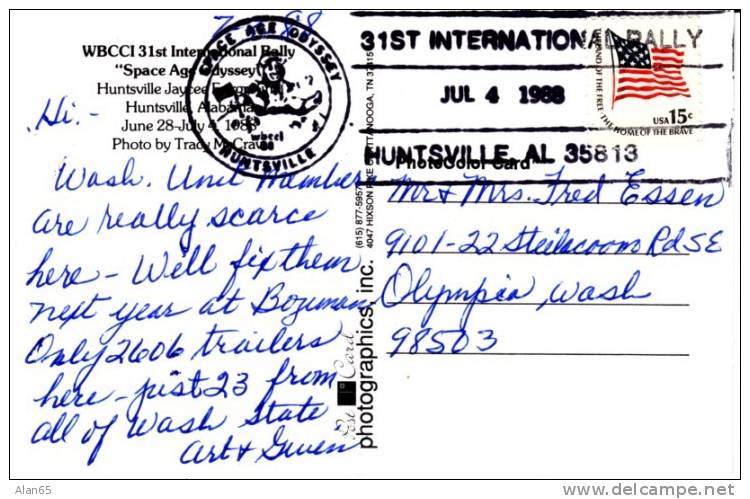 WBCCI 31st International Rally
"Space Age Odyssey"
Huntsville Jaycee
Huntsville, Alabama
June 28-July 4, 1988
Photo by Tracy McCraw
SPACE AGE ODYSSEY
wbcci
88
HUNTSVILLE
31ST INTERNATIONAL RALLY
JUL 4 1988
HUNTSVILLE, AL 35813
LAND OF THE FREE THE HOME OF THE BRAVE
USA 15c
PhotoColor Card
Hi. -
Wash. Unit Members
are really scarce
here - Will fix them
next year at Bozeman
Only 2606 trailers
here - just 23 from
all of Wash State
Art & Gwen
(615) 877-5957
4047 HIXSON PIKE CHATTANOOGA, TN 37415
Post Card
photographics, inc.
Mr & Mrs. Fred Essen
9101-22 Steilacoom Rd SE
Olympia, Wash
98503
Alan65
www.delcampe.net